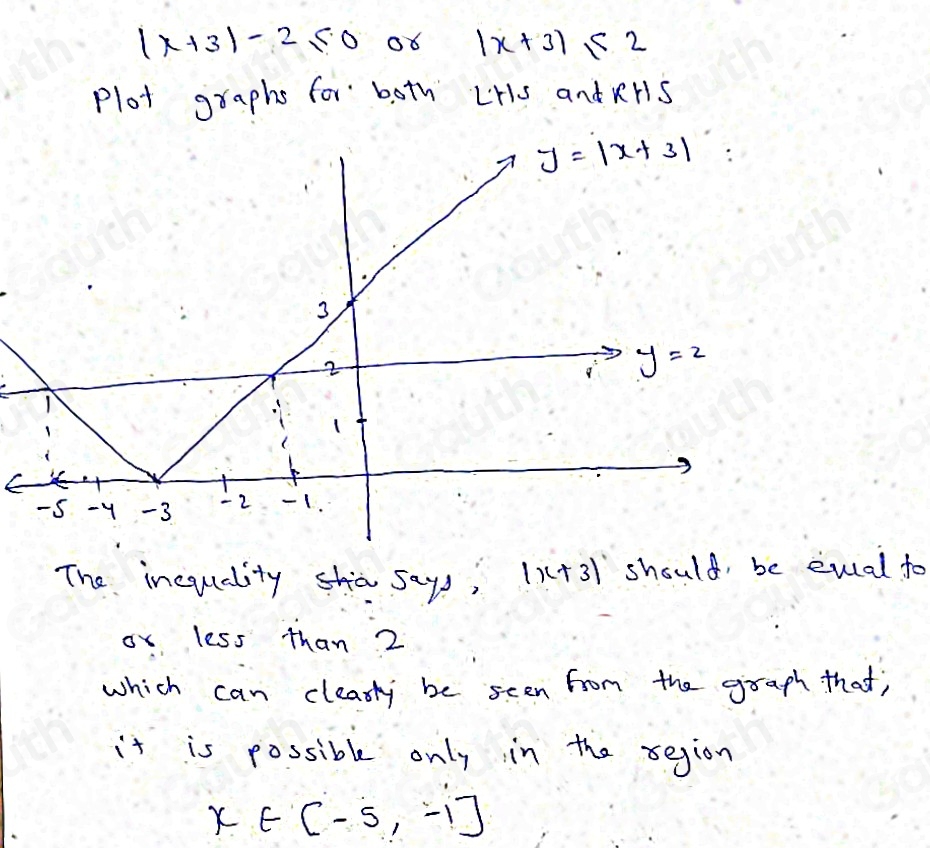 |x+3| - 2 ≤ 0 or |x+3| ≤ 2
Plot graphs for both LHS and RHS
y = |x+3|
3
2
y = 2
1
-5 -4 -3 -2 -1
The inequality says, |x+3| should be equal to
or less than 2
which can clearly be seen from the graph that,
it is possible only in the region
x ∈ [-5, -1]